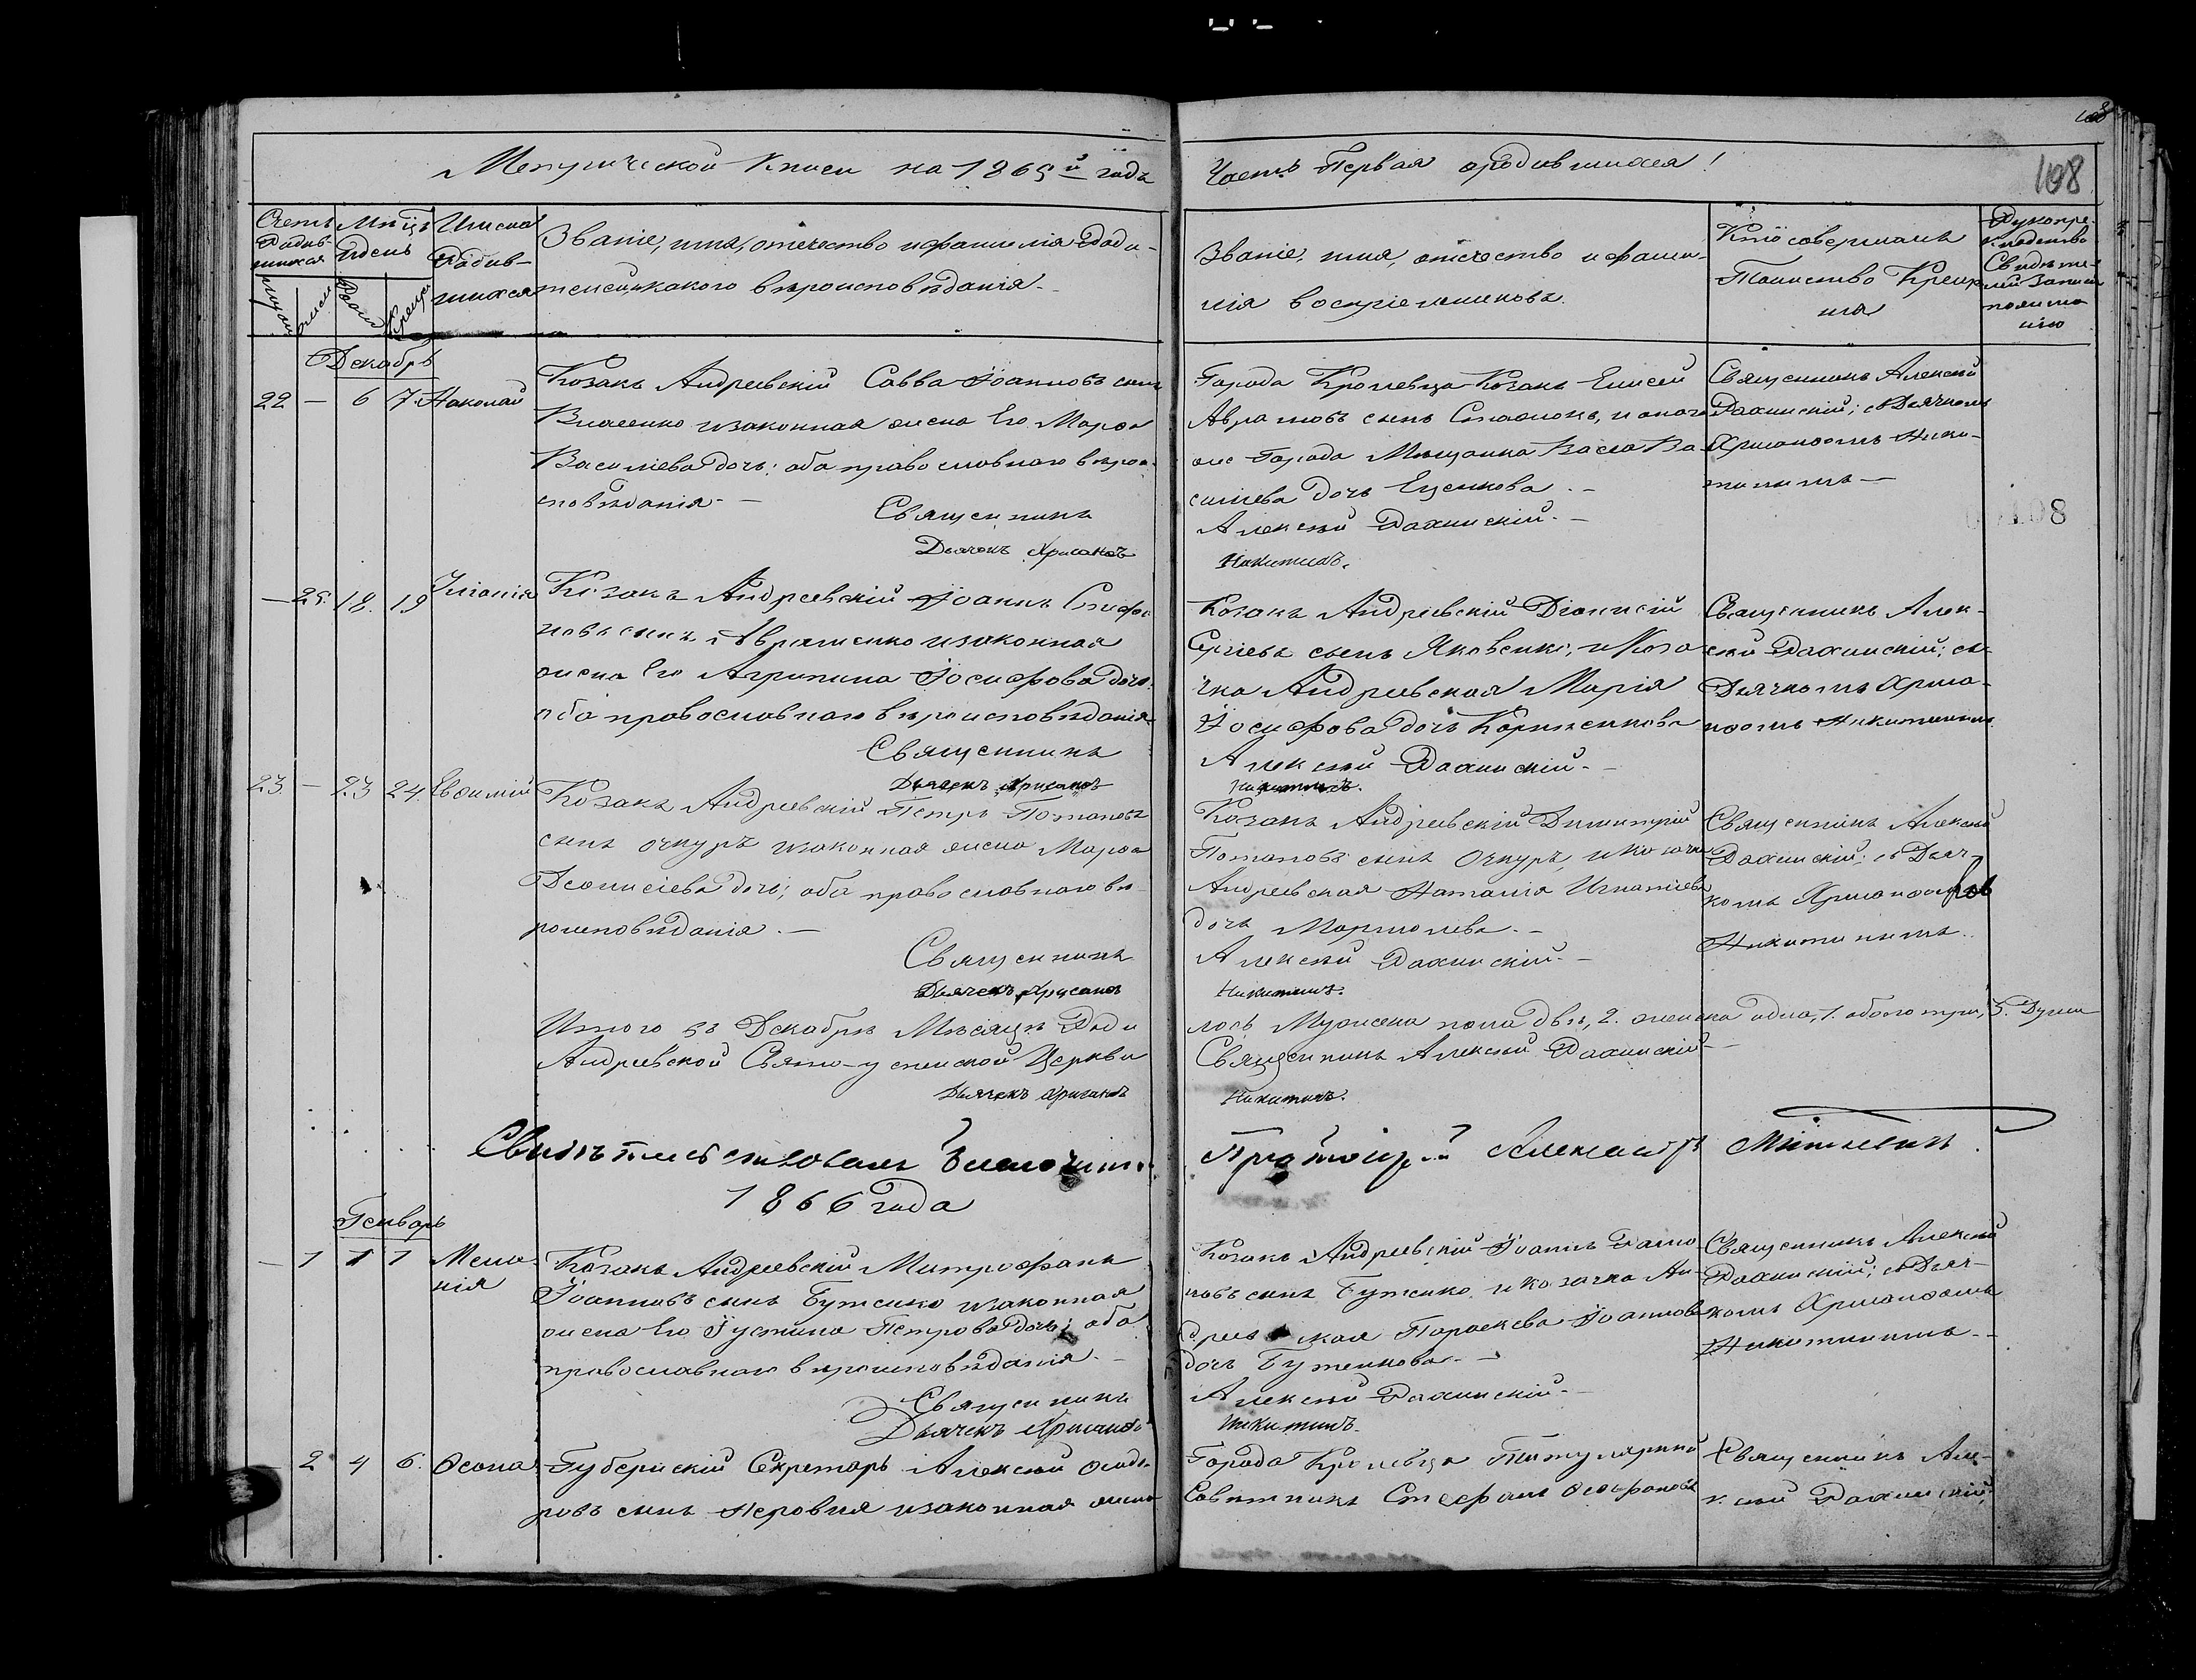 108
Метрической Книги на 1865й года
Часть Первая ородившихся!
108
Счетъ Родив-шихся
Мц҃ъ и день
Имена Родив-шихся
Званіе, имя, отечество и фамилія Роди-
телей, и какого вѣроисповѣданія.
Званіе, имя, отечество и фами-
лія воспріемниковъ.
Кто совершалъ
Таинство Креще
нія
Рукопри-
кладство
Свидѣте-
лей записи
по жела
нію
Декабрь
22 — 6 7 Николай
Козакъ Андреевскій Савва Іоанновъ сынъ
Власенко изаконная жена Его Марѳа
Василіева дочь; оба православнаго вѣрои-
сповѣданія. —
Священникъ
Дьячекъ Хрисанѳъ
Города Кролевца Козакъ Елисей
Аврамовъ сынъ, и того
же Города Мѣщанка Васса Ва
силіева дочь Ещенкова. —
Алексѣй Рахинскій. —
Никитинъ.
Священникъ Алексѣй
Рахинскій; съ Дьячкомъ
Хрисанѳомъ Ники-
тинымъ —
108
— 25. 18. 19 Іуліанія
Козакъ Андреевскій Іоаннъ Стефа
новъ сынъ Авраменко изаконная
жена Его Агрипина Іосифова дочь.
оба православнаго вѣроисповѣданія
Священникъ
Дьячекъ Хрисанѳъ
Козакъ Андреевскій Діонисій
Сергіевъ сынъ Яковенко, и Коза
чка Андреевская Марія
Іосифова дочь
Алексѣй Рахинскій. —
Никитинъ.
Священникъ Алек-
сѣй Рахинскій; съ
Дьячкомъ Хриса-
нѳомъ Никитинымъ.
23. — 23 24. Евѳимій
Козакъ Андреевскій Петръ Потаповъ
сынъ Очкуръ изаконная жена Марѳа
Діонисіева дочь; оба православнаго вѣ-
роисповѣданія. —
Священникъ
Дьячекъ Хрисанѳъ
Козакъ Андреевскій Димитрій
Потаповъ сынъ Очкуръ, и козачка
Андреевская Наталія Игнатіева
дочь. —
Алексѣй Рахинскій. —
Никитинъ.
Священникъ Алексѣй
Рахинскій; съ Дьяч-
комъ Хрисанѳомъ
Никитинымъ.
Итого въ Декабрѣ Мѣсяцѣ Роди
лось Мужеска пола двѣ, 2. женска одна, 1. обоего три, 3. Души
Андреевской Свято-успенской Церкви
Священникъ Алексѣй Рахинскій —
Дьячекъ Хрисанѳъ
Никитинъ.
Свидѣтельствовалъ Благочинн.
Протоіерей Александръ
1866 года
Генварь
— 1 1 1 Мела-
нія
Козакъ Андреевскій Митрофанъ
Іоанновъ сынъ Бутенко изаконная
жена Его Іустина Петрова дочь; оба
православнаго вѣроисповѣданія. —
Священникъ
Дьячекъ Хрисанѳъ
Козакъ Андреевскій Іоаннъ
новъ сынъ Бутенко, и козачка Ан-
дреевская Параскева Іоаннова
дочь Бутенкова. —
Алексѣй Рахинскій. —
Никитинъ.
Священникъ Алексѣй
Рахинскій; съ Дьяч-
комъ Хрисанѳомъ
Никитинымъ. —
— 2 4 6. Ѳеона
Губернскій Секретарь Алексѣй Ѳеодо
ровъ сынъ изаконная жена
Города Кролевца Титулярный
Совѣтникъ Стефанъ
Священникъ Але-
ксѣй Рахинскій;